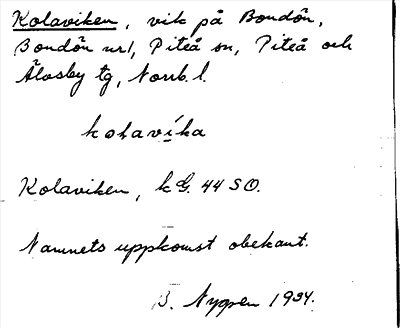 Kolaviken, vik på Bondön,
Bondön nr 1, Piteå sn, Piteå och
Älvsby tg, Norrb. l.
kolavíka
Kolaviken, kG. 44 SO.
Namnets uppkomst obekant.
B. Nygren 1934.